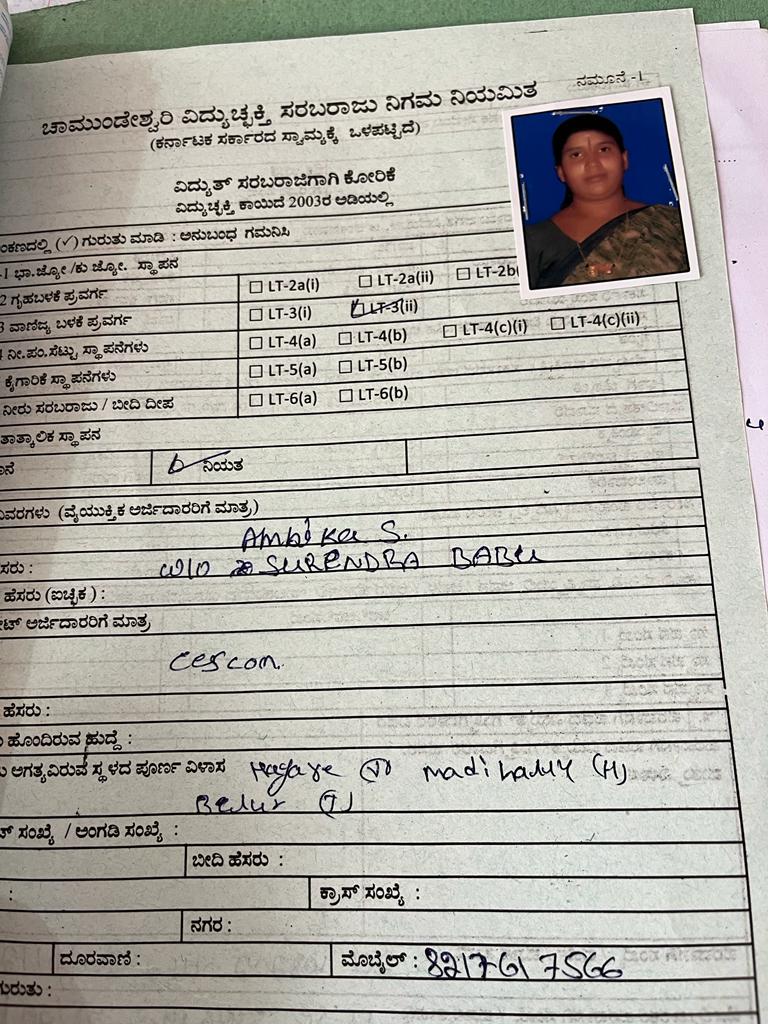 ನಮೂನೆ -1
ಚಾಮುಂಡೇಶ್ವರಿ ವಿದ್ಯುಚ್ಛಕ್ತಿ ಸರಬರಾಜು ನಿಗಮ ನಿಯಮಿತ
(ಕರ್ನಾಟಕ ಸರ್ಕಾರದ ಸ್ವಾಮ್ಯಕ್ಕೆ ಒಳಪಟ್ಟಿದೆ)
ವಿದ್ಯುತ್ ಸರಬರಾಜಿಗಾಗಿ ಕೋರಿಕೆ
ವಿದ್ಯುಚ್ಛಕ್ತಿ ಕಾಯಿದೆ 2003ರ ಅಡಿಯಲ್ಲಿ
ಂಕಣದಲ್ಲಿ (✓) ಗುರುತು ಮಾಡಿ : ಅನುಬಂಧ ಗಮನಿಸಿ
-1 ಭಾ.ಜ್ಯೋ /ಕು ಜ್ಯೋ. ಸ್ಥಾಪನ
2 ಗೃಹಬಳಕೆ ಪ್ರವರ್ಗ ☐ LT-2a(i) ☐ LT-2a(ii) ☐ LT-2b(
3 ವಾಣಿಜ್ಯ ಬಳಕೆ ಪ್ರವರ್ಗ ☐ LT-3(i) ☑ LT-3(ii)
4 ನೀ.ಪಂ.ಸೆಟ್ಟು ಸ್ಥಾಪನೆಗಳು ☐ LT-4(a) ☐ LT-4(b) ☐ LT-4(c)(i) ☐ LT-4(c)(ii)
ಕೈಗಾರಿಕೆ ಸ್ಥಾಪನೆಗಳು ☐ LT-5(a) ☐ LT-5(b)
ನೀರು ಸರಬರಾಜು / ಬೀದಿ ದೀಪ ☐ LT-6(a) ☐ LT-6(b)
ತಾತ್ಕಾಲಿಕ ಸ್ಥಾಪನ
ನಿಯತ
ವಿವರಗಳು (ವೈಯುಕ್ತಿಕ ಅರ್ಜಿದಾರರಿಗೆ ಮಾತ್ರ)
Ambika S.
ಸರು : W/o SURENDRA BABU
ಹೆಸರು (ಐಚ್ಛಿಕ) :
ೇಟ್ ಅರ್ಜಿದಾರರಿಗೆ ಮಾತ್ರ
Cescom.
ಹೆಸರು :
ಹೊಂದಿರುವ ಹುದ್ದೆ :
ಅಗತ್ಯವಿರುವ ಸ್ಥಳದ ಪೂರ್ಣ ವಿಳಾಸ Hagare (V) madihally (H)
Belur (T)
ಟ್ ಸಂಖ್ಯೆ / ಅಂಗಡಿ ಸಂಖ್ಯೆ :
ಬೀದಿ ಹೆಸರು :
: ಕ್ರಾಸ್ ಸಂಖ್ಯೆ :
ನಗರ :
ದೂರವಾಣಿ : ಮೊಬೈಲ್ : 8217617566
ಗುರುತು :